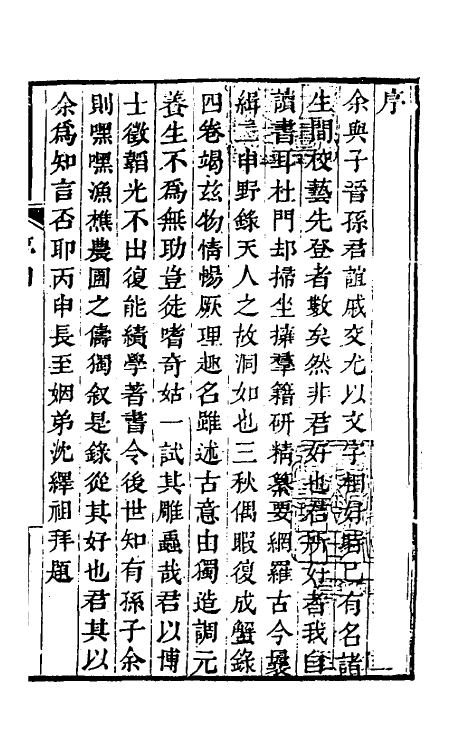 序
余與子晉孫君誼戚交尤以文字相好君已有名諸
生間校藝先登者數矣然非君好也君所好者我自
讀書耳杜門却掃坐擁羣籍研精纂要網羅古今曩
緝二申野錄天人之故洞如也三秋偶暇復成蟹錄
四卷竭茲物情暢厥理趣名雖述古意由獨造調元
養生不爲無助豈徒嗜奇姑一試其雕蟲哉君以博
士徵韜光不出復能績學著書令後世知有孫子余
則嘿嘿漁樵農圃之儔獨叙是錄從其好也君其以
余爲知言否耶丙申長至姻弟沈繹祖拜題